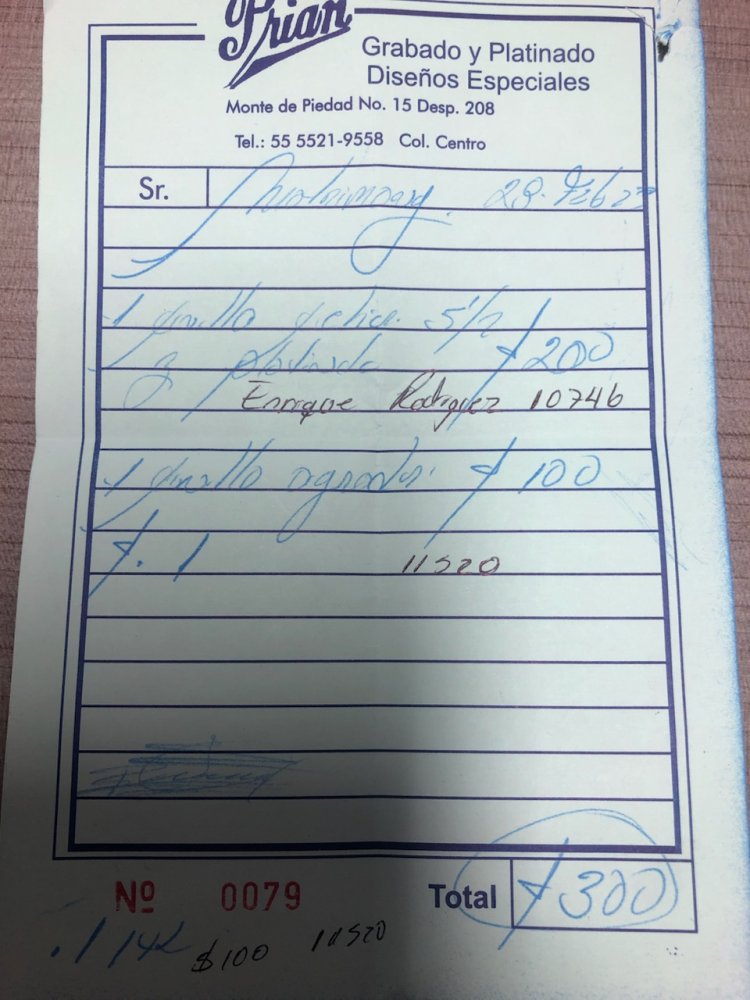 Prian
Grabado y Platinado
Diseños Especiales
Monte de Piedad No. 15 Desp. 208
Tel.: 55 5521-9558 Col. Centro
Sr. 28. Feb 23
1 anillo 5 1/2
y platinado $ 200
Enrique Rodriguez 10746
1 anillo $ 100
11520
Nº 0079 Total $300
.1 14K $100 11520